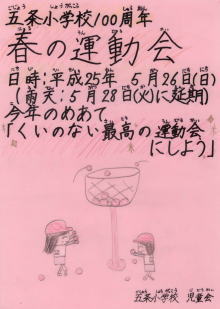 五条小学校100周年
春の運動会
日時：平成25年 5月26日(日)
(雨天：5月28日(火)に延期)
今年のめあて
「くいのない最高の運動会
にしよう」
五条小学校 児童会